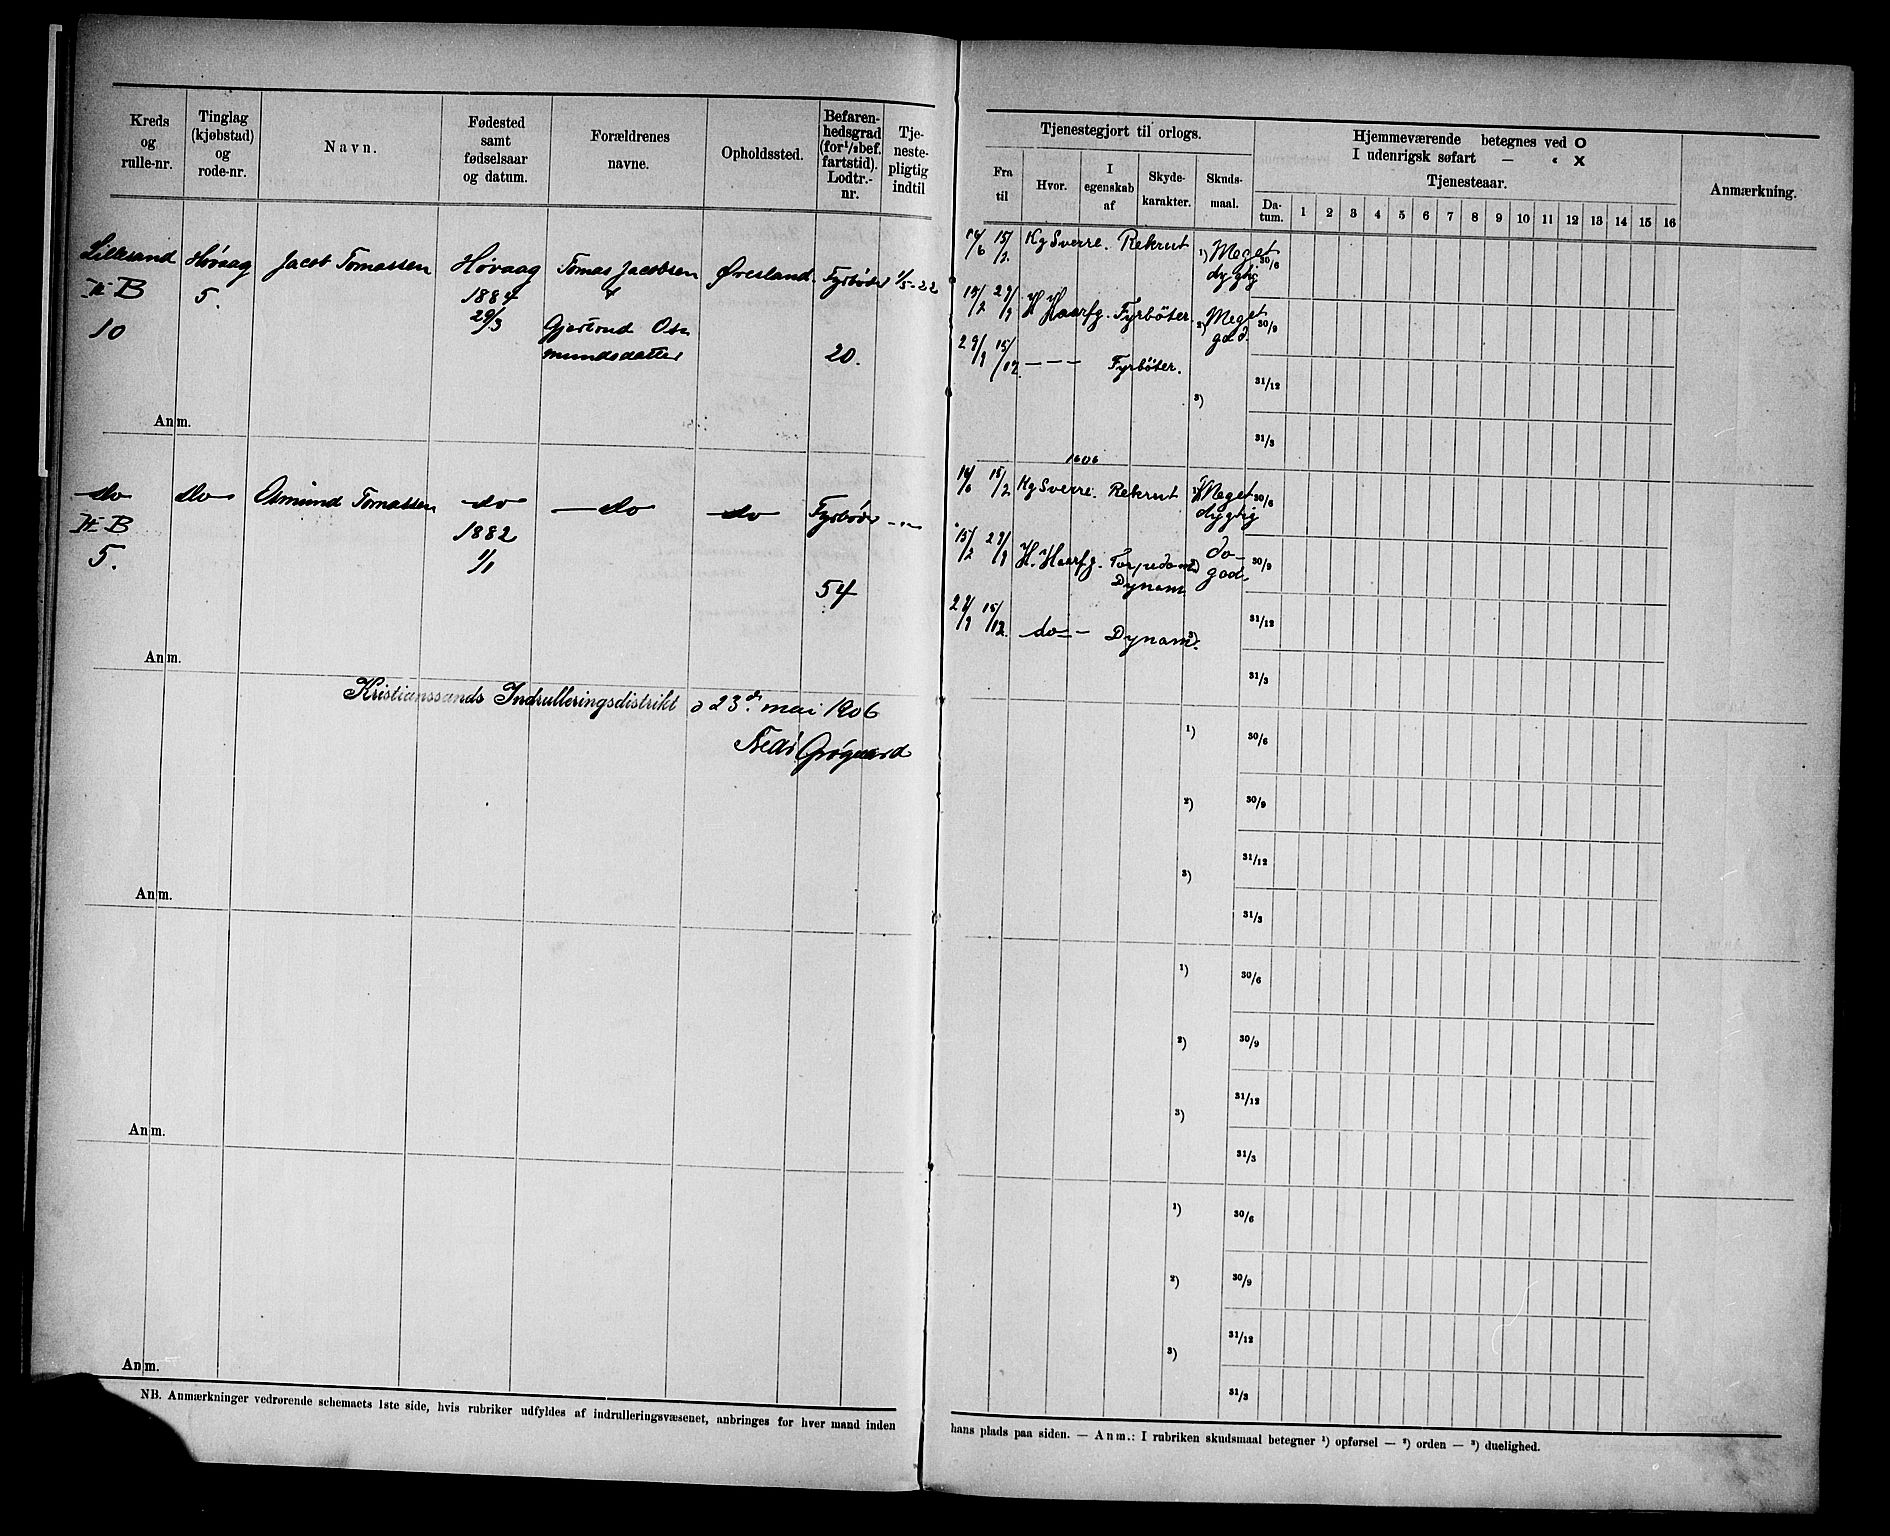 Kreds og rulle-nr.
Tinglag (kjøbstad) og rode-nr.
Navn.
Fødested samt fødselsaar og datum.
Forældrenes navne.
Opholdssted.
Befarenhedsgrad (for 1/2 bef. fartstid). Lodtr.-nr.
Tjenestepligtig indtil
Tjenestegjort til orlogs.
Fra til
Hvor.
I egenskab af
Skydekarakter.
Skudsmaal.
Hjemmeværende betegnes ved O
I udenrigsk søfart — « X
Tjenesteaar.
Datum. 1 2 3 4 5 6 7 8 9 10 11 12 13 14 15 16
Anmærkning.
Lillesand Høvaag Jacob Tomassen Høvaag Tomas Jacobsen Øvesland. Fyrbøder 1/5-22
II-B 5. 1884 &
29/3 Gjertrud Os-
10 mundsdatter 20.
16/6 15/2 Kg Sverre. Rekrut 1) Meget dygtig 30/6
15/2 29/9 H Haarfg. Fyrböter. 2) Meget god. 30/9
29/9 15/12. — — — Fyrböter. 31/12
3)
31/3
Anm.
1606
do do Osmund Tomassen do do do Fyrbøder -"-
II-B 1882
5. 1/1
54
16/6 15/2 Kg Sverre. Rekrut 1) Meget dygtig 30/6
15/2 29/9 H. Haarfg. Torpedom 2) do god. 30/9
Dynam.
29/9 15/12. do Dynam. 3) 31/12
31/3
Anm.
Kristianssands Indrulleringsdistrikt d 23de mai 1906
Fredr Grøgaard
1) 30/6
2) 30/9
3) 31/12
31/3
Anm.
1) 30/6
2) 30/9
3) 31/12
31/3
Anm.
1) 30/6
2) 30/9
3) 31/12
31/3
Anm.
NB. Anmærkninger vedrørende schemaets 1ste side, hvis rubriker udfyldes af indrulleringsvæsenet, anbringes for hver mand inden
hans plads paa siden. — Anm.: I rubriken skudsmaal betegner 1) opførsel — 2) orden — 3) duelighed.